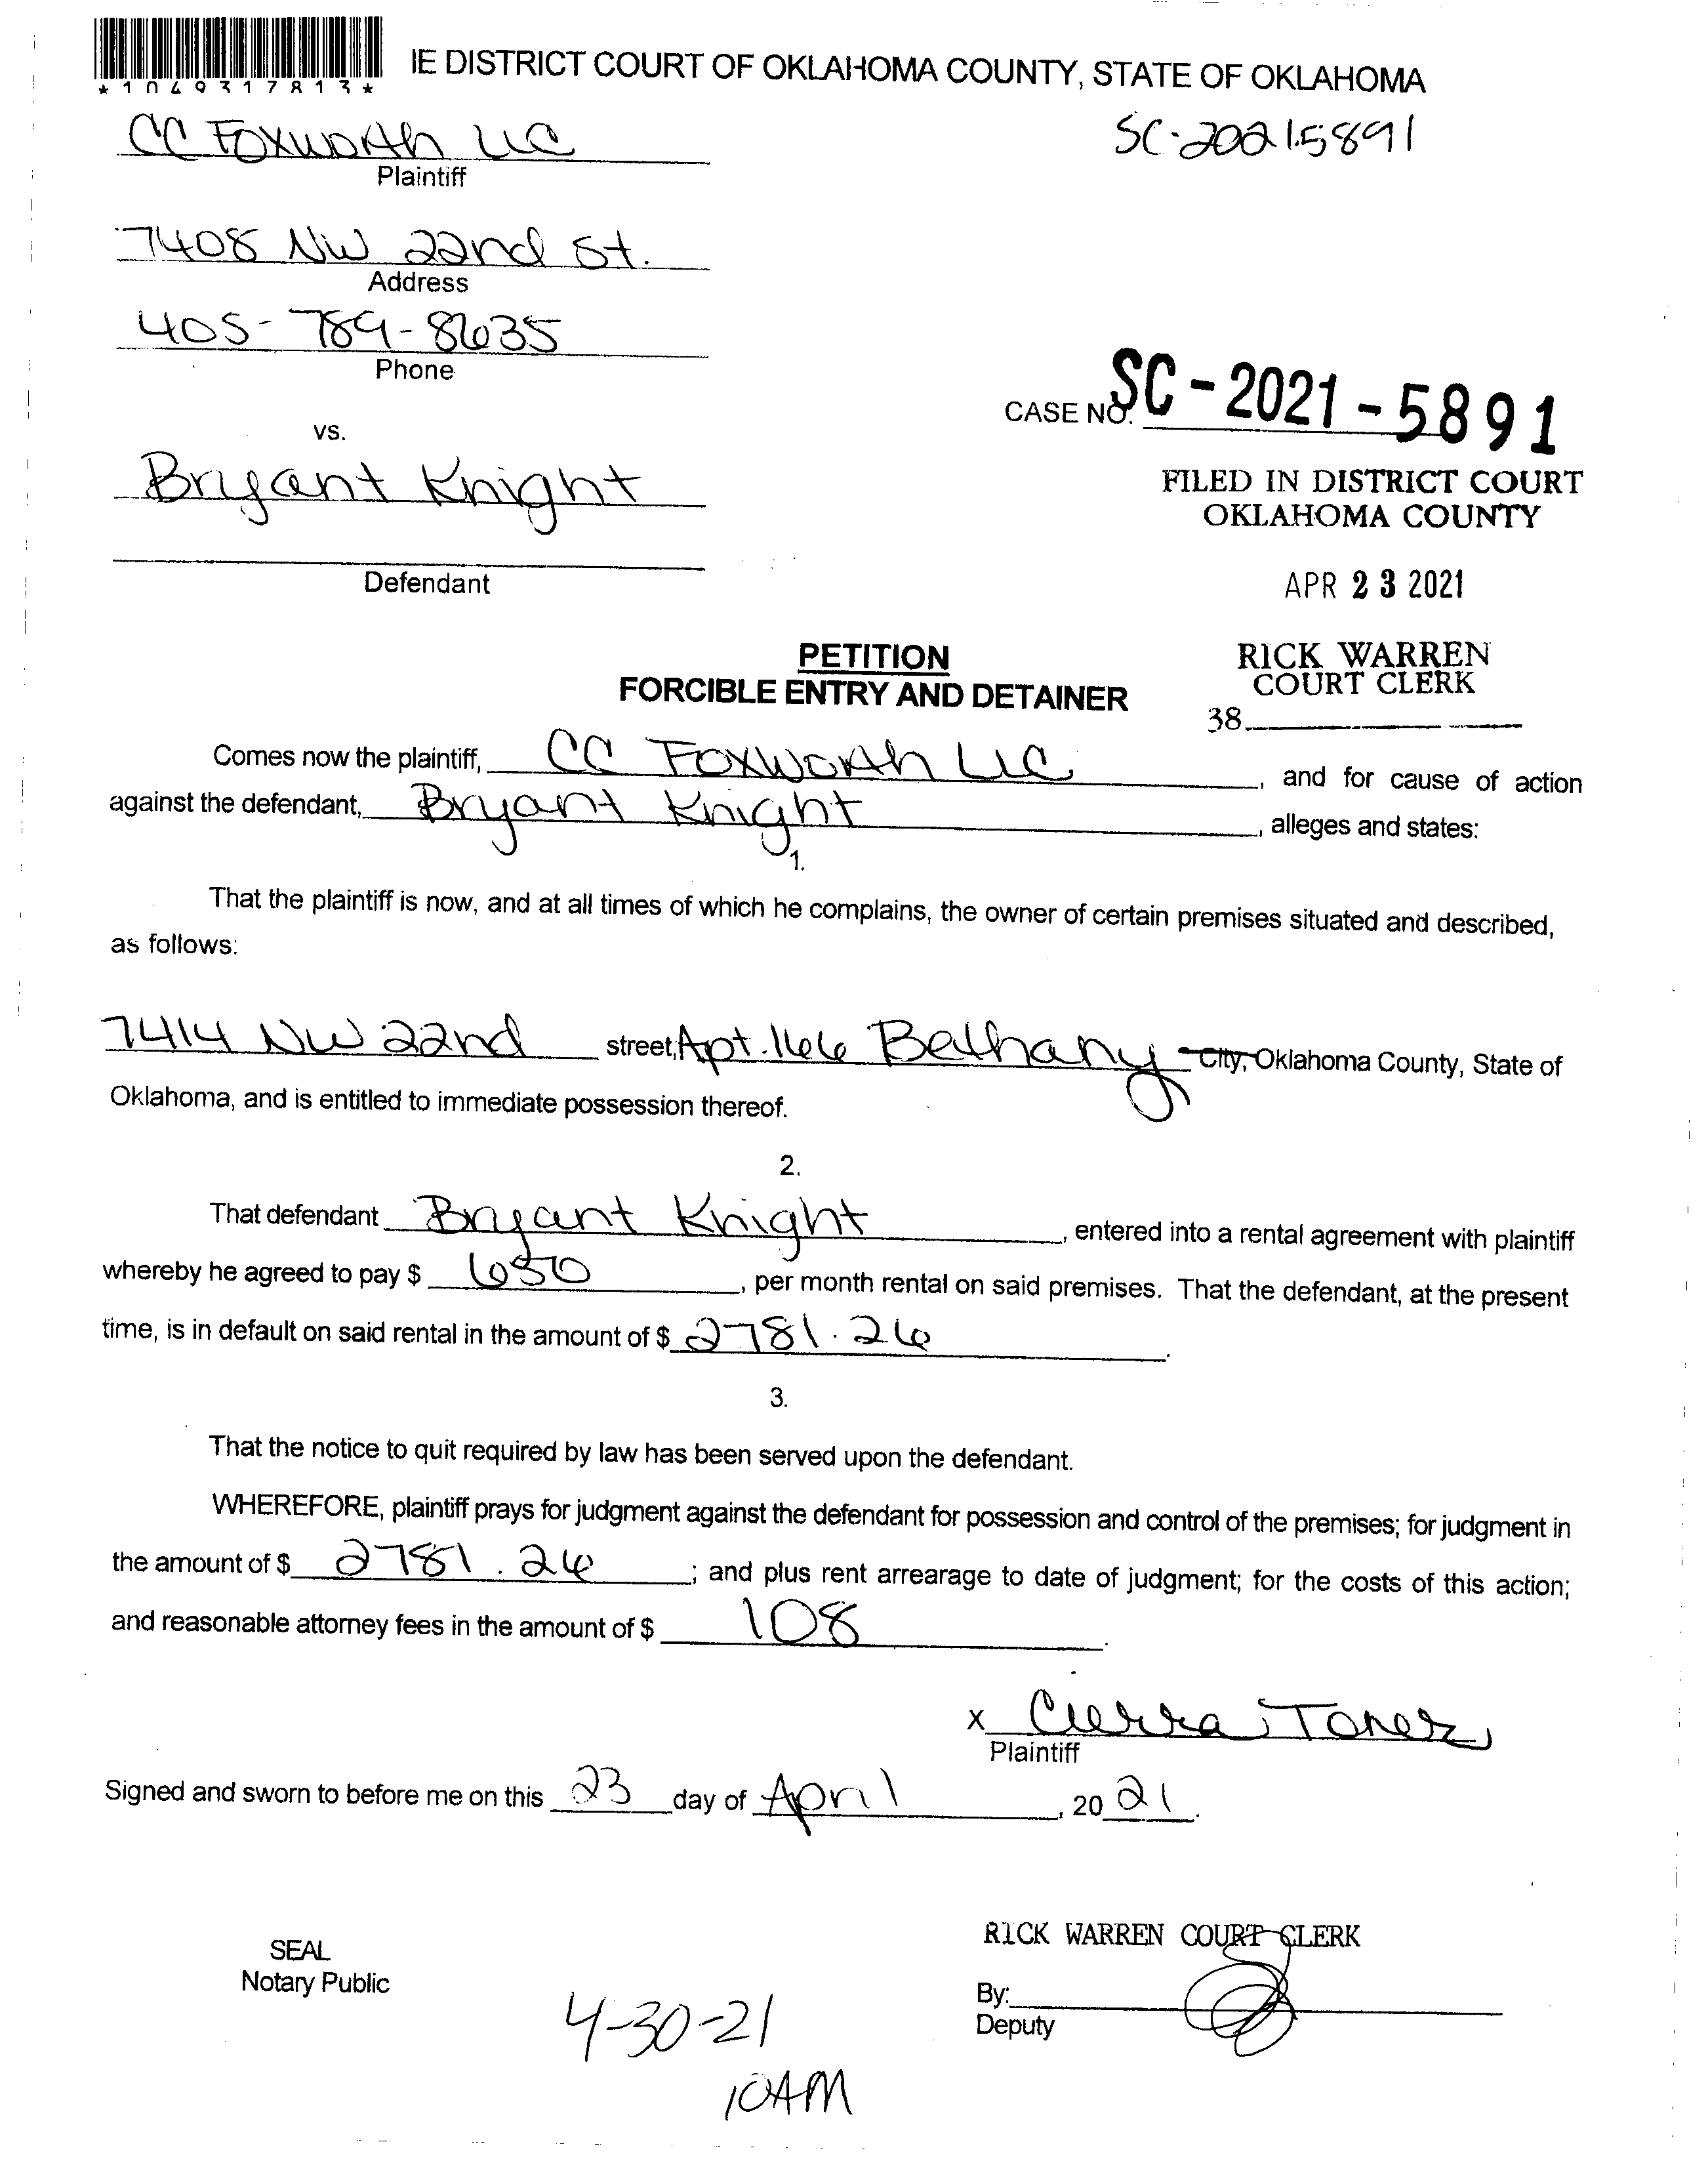 *1049317813*
IE DISTRICT COURT OF OKLAHOMA COUNTY, STATE OF OKLAHOMA
CC Foxworth LLC
Plaintiff
SC-2021-5891
7408 NW 22nd St.
Address
405-789-8635
Phone
CASE NO. SC-2021-5891
vs.
Bryant Knight
FILED IN DISTRICT COURT
OKLAHOMA COUNTY
Defendant
APR 23 2021
PETITION
FORCIBLE ENTRY AND DETAINER
RICK WARREN
COURT CLERK
38
Comes now the plaintiff, CC Foxworth LLC, and for cause of action
against the defendant, Bryant Knight, alleges and states:
1.
That the plaintiff is now, and at all times of which he complains, the owner of certain premises situated and described,
as follows:
7414 NW 22nd street, Apt. 166 Bethany City, Oklahoma County, State of
Oklahoma, and is entitled to immediate possession thereof.
2.
That defendant Bryant Knight, entered into a rental agreement with plaintiff
whereby he agreed to pay $ 650, per month rental on said premises. That the defendant, at the present
time, is in default on said rental in the amount of $ 2781.26.
3.
That the notice to quit required by law has been served upon the defendant.
WHEREFORE, plaintiff prays for judgment against the defendant for possession and control of the premises; for judgment in
the amount of $ 2781.26; and plus rent arrearage to date of judgment; for the costs of this action;
and reasonable attorney fees in the amount of $ 108.
X Cierra Toner
Plaintiff
Signed and sworn to before me on this 23 day of April, 20 21.
RICK WARREN COURT CLERK
SEAL
Notary Public
By:
Deputy
4-30-21
10AM